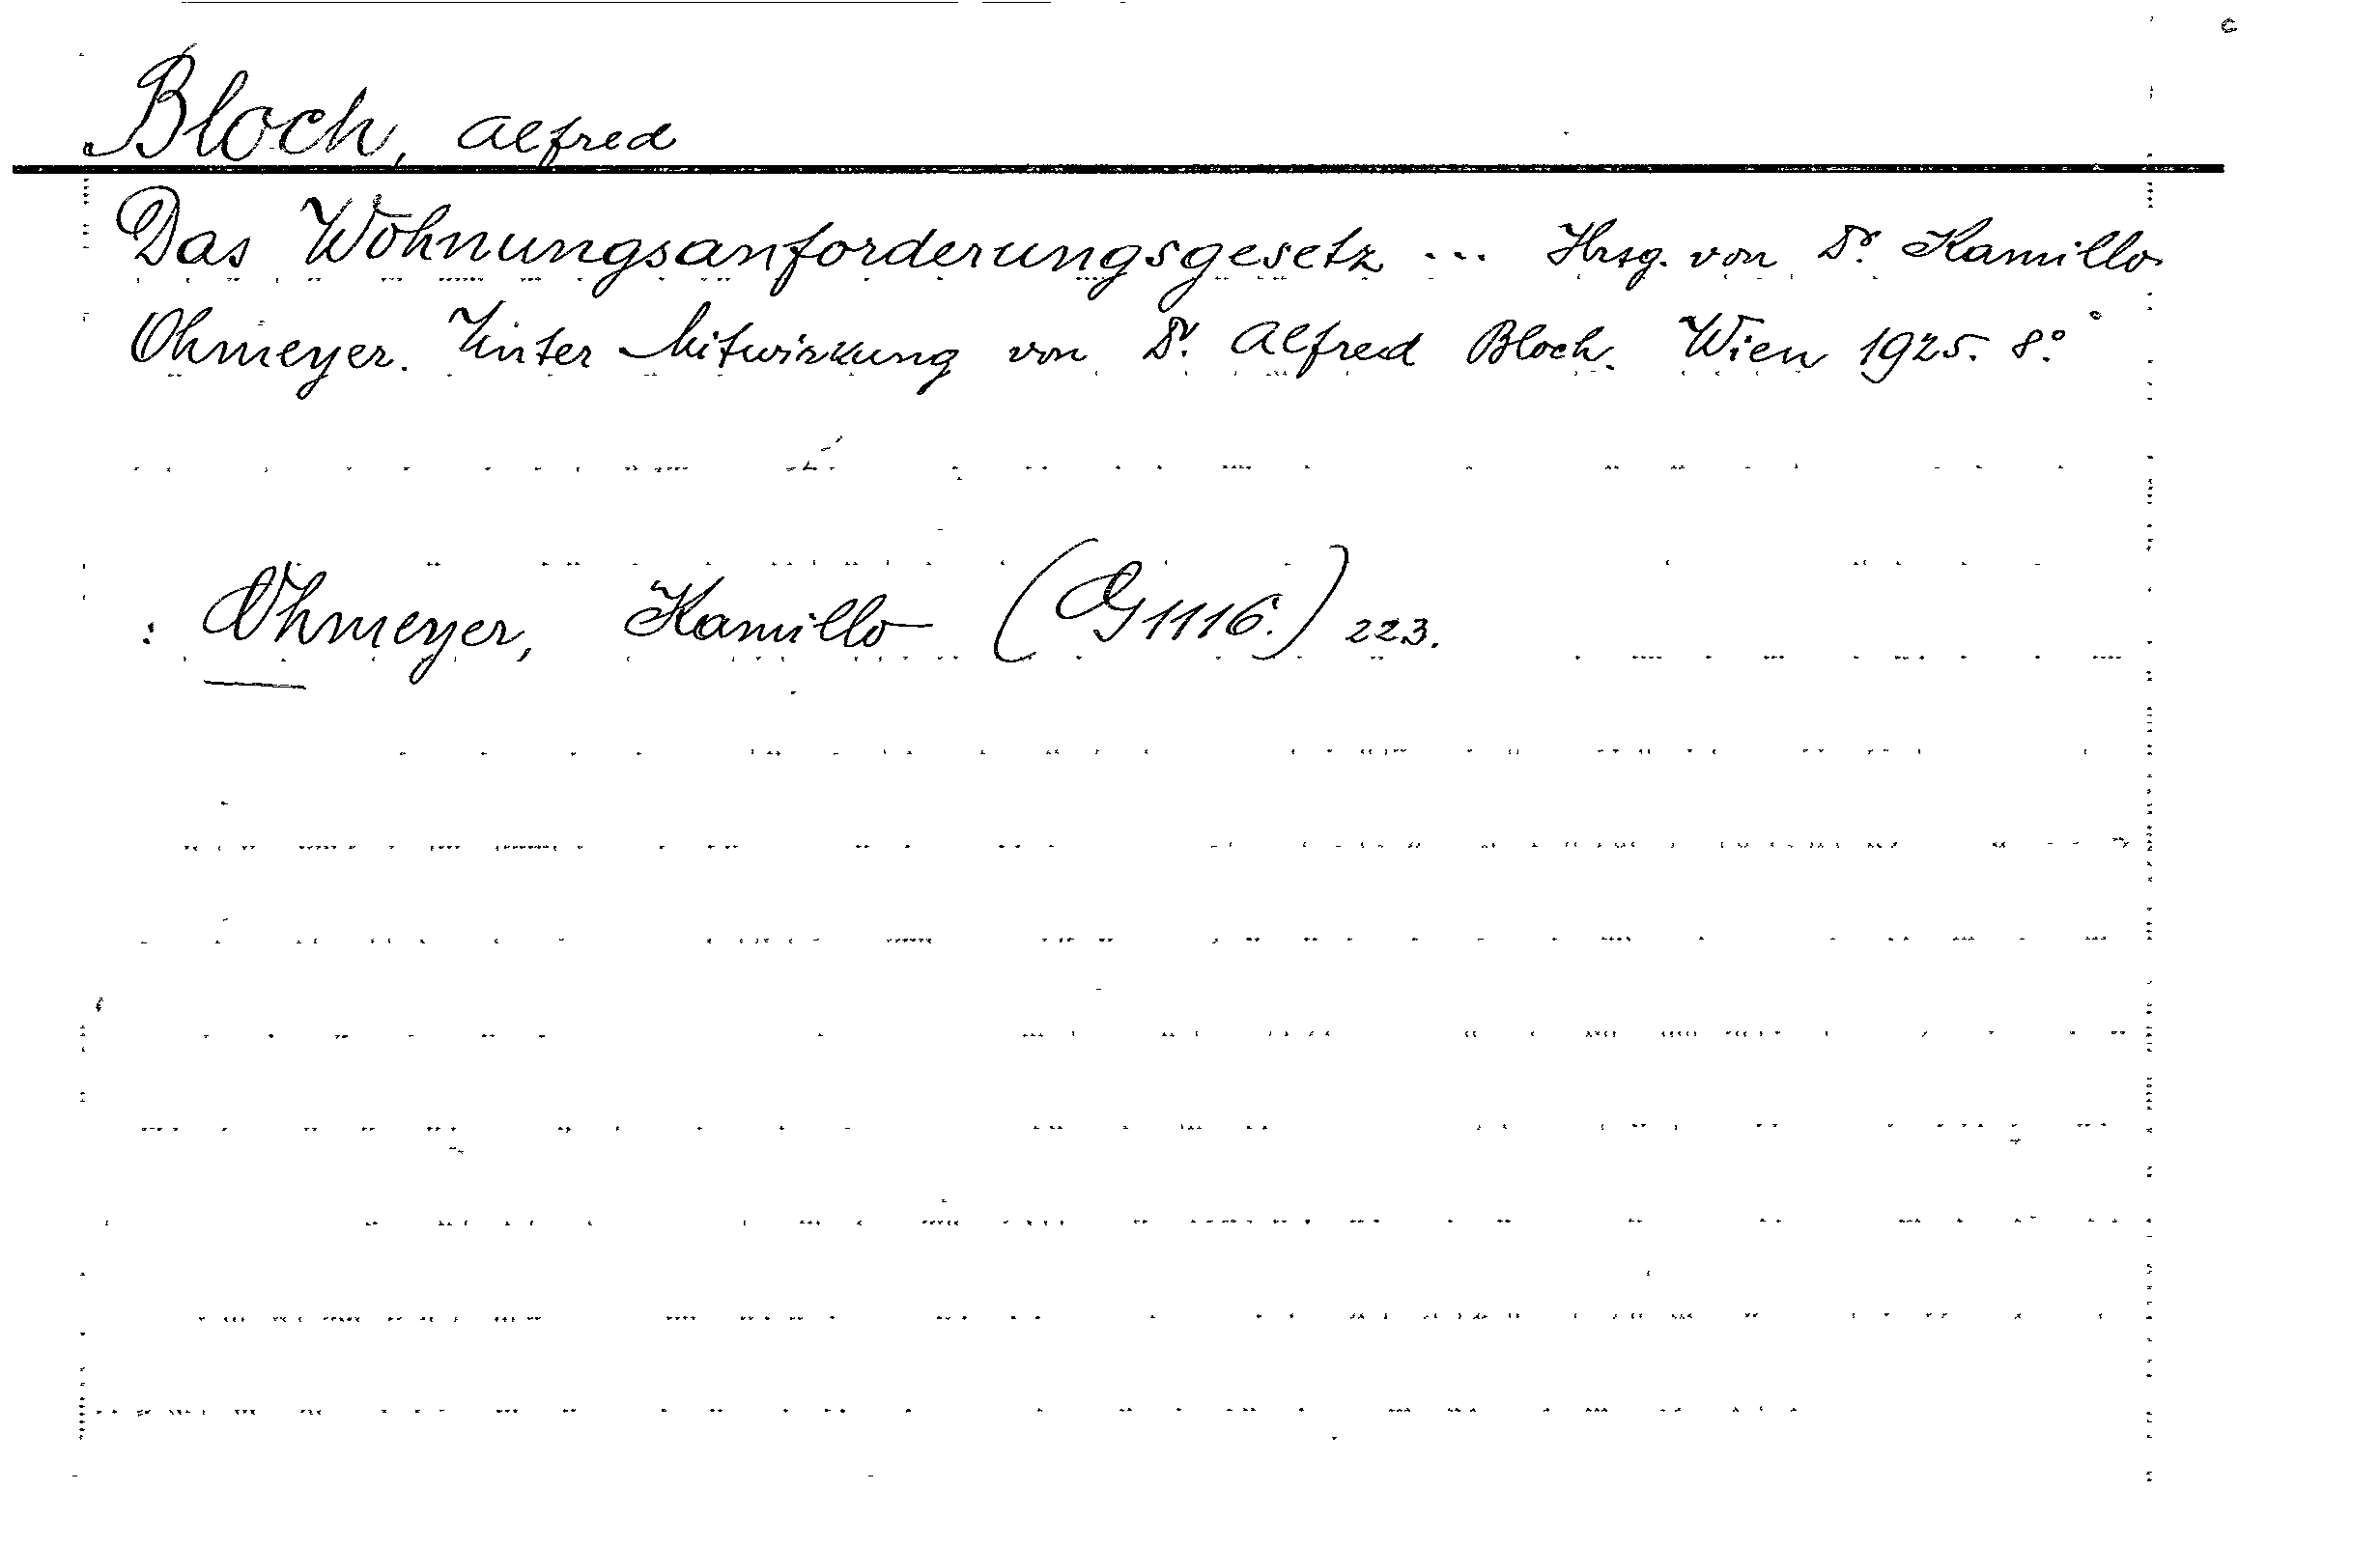 Bloch, Alfred
Das Wohnungsanforderungsgesetz ... Hrsg. von Dr. Kamillo
Ohmeyer. Unter Mitwirkung von Dr. Alfred Bloch. Wien 1925. 8°.
: Ohmeyer, Kamillo (G1116.) 223.